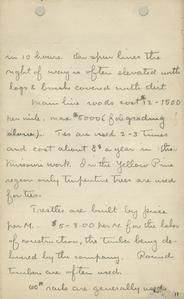 in 10 hours. On spur lines the
right of way is often elevated with
logs & brush covered with dirt
Main line roads cost $12-1500
per mile, max $5000 (of degrading
alone). Ties are used 2-3 times
and cost about 8¢ a year in the
Missouri work. In the Yellow Pine
region only turpentine trees are used
for ties.
Trestles are built by piece
per M. $5-8.00 per M. for the labor
of construction, the timber being de-
livered by the company. Round
timbers are often used.
60# rails are generally used